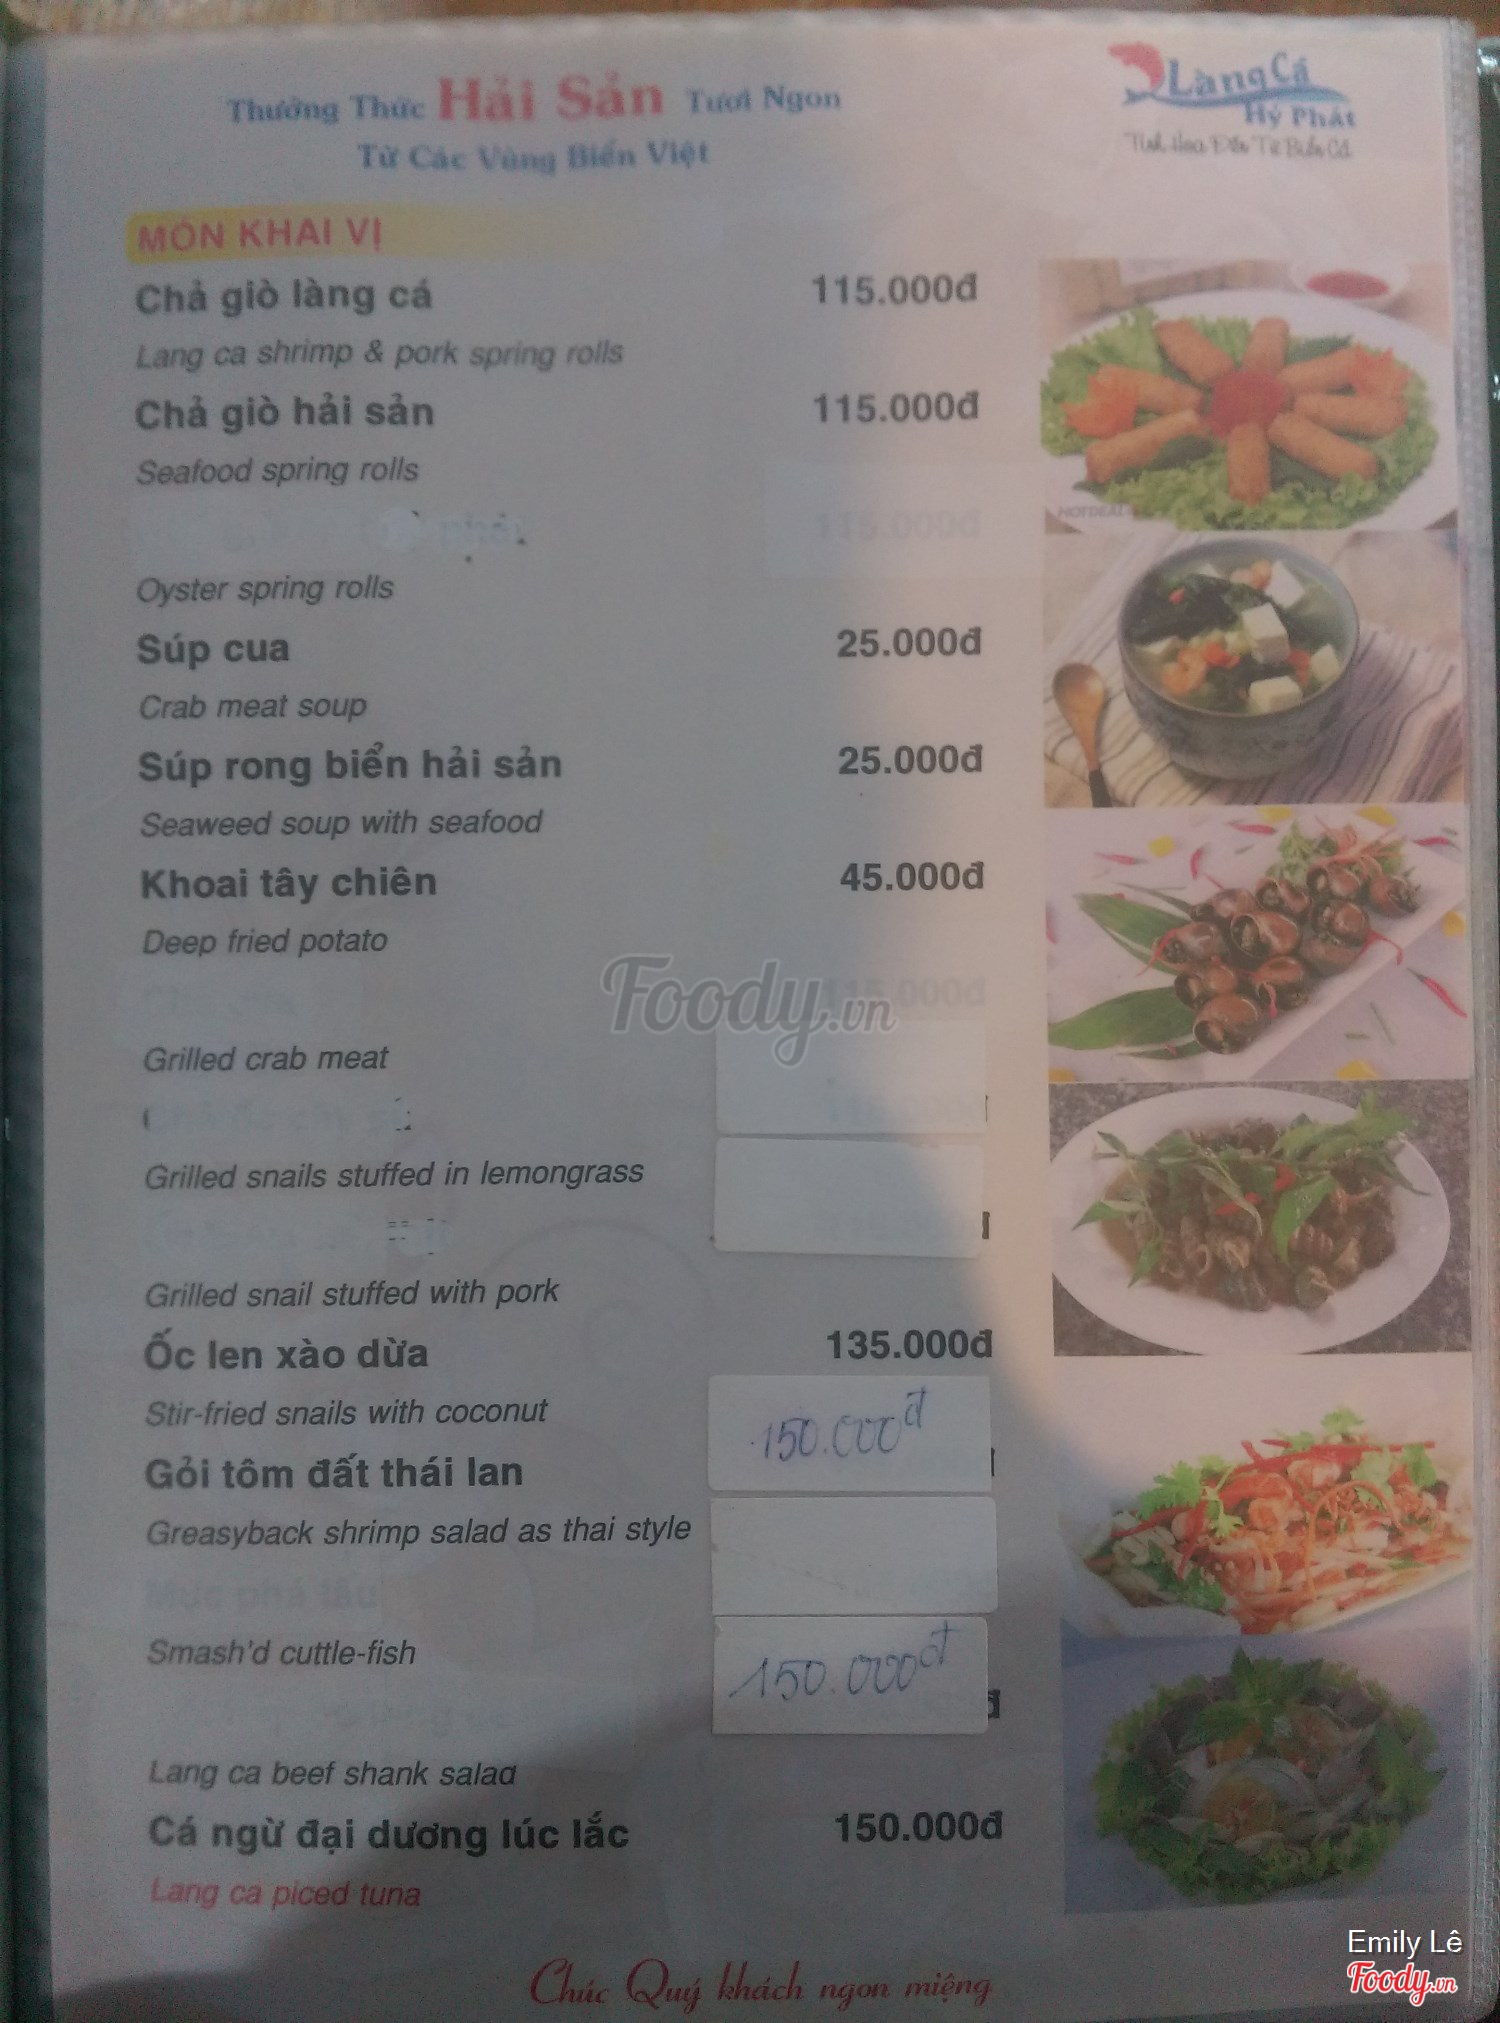 Thưởng Thức Hải Sản Tươi Ngon
Từ Các Vùng Biển Việt
Làng Cá
Hỷ Phát
MÓN KHAI VỊ
Chả giò làng cá 115.000đ
Lang ca shrimp & pork spring rolls
Chả giò hải sản 115.000đ
Seafood spring rolls
115.000đ
Oyster spring rolls
Súp cua 25.000đ
Crab meat soup
Súp rong biển hải sản 25.000đ
Seaweed soup with seafood
Khoai tây chiên 45.000đ
Deep fried potato
115.000đ
Foody.vn
Grilled crab meat
Grilled snails stuffed in lemongrass
đ
Grilled snail stuffed with pork
Ốc len xào dừa 135.000đ
Stir-fried snails with coconut
150.000đ
Gỏi tôm đất thái lan
Greasyback shrimp salad as thai style
Mực phá lấu
Smash'd cuttle-fish
150.000đ
đ
Lang ca beef shank salad
Cá ngừ đại dương lúc lắc 150.000đ
Lang ca piced tuna
Chúc Quý khách ngon miệng
HOTDEAL
Emily Lê
Foody.vn